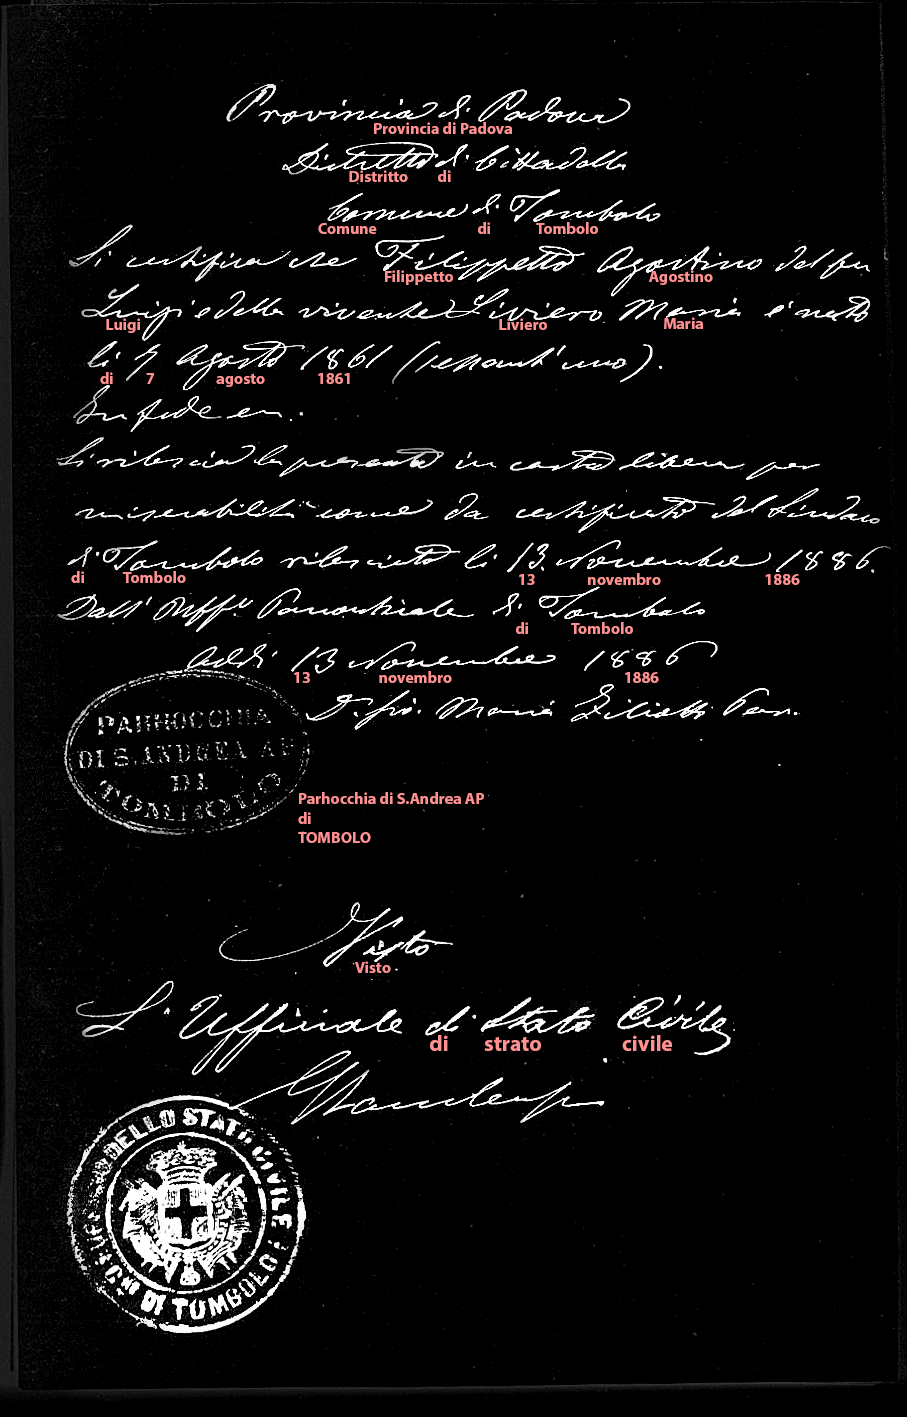 Provincia di Padova
Provincia di Padova
Distretto di Cittadella
Distritto di
Comune di Tombolo
Comune di Tombolo
Si certifica che Filippetto Agostino del fu
Filippetto Agostino
Luigi e della vivente Liviero Maria è nato
Luigi Liviero Maria
li 7 Agosto 1861 (sessant'uno).
di 7 agosto 1861
In fede
Si rilascia la presente in carta libera per
miserabilità come da certificato del Sindaco
di Tombolo rilasciato li 13. Novembre 1886.
di Tombolo 13 novembro 1886
Dall' Uff.º Parrochiale di Tombolo
di Tombolo
Addi 13 Novembre 1886
13 novembro 1886
PARROCCHIA
DI S. ANDREA AP
DI
TOMBOLO
Maria Par.
Parhocchia di S.Andrea AP
di
TOMBOLO
Visto
Visto
L'Ufficiale di Stato Civile
di strato civile
DELLO STATO CIVILE
DI TOMBOLO